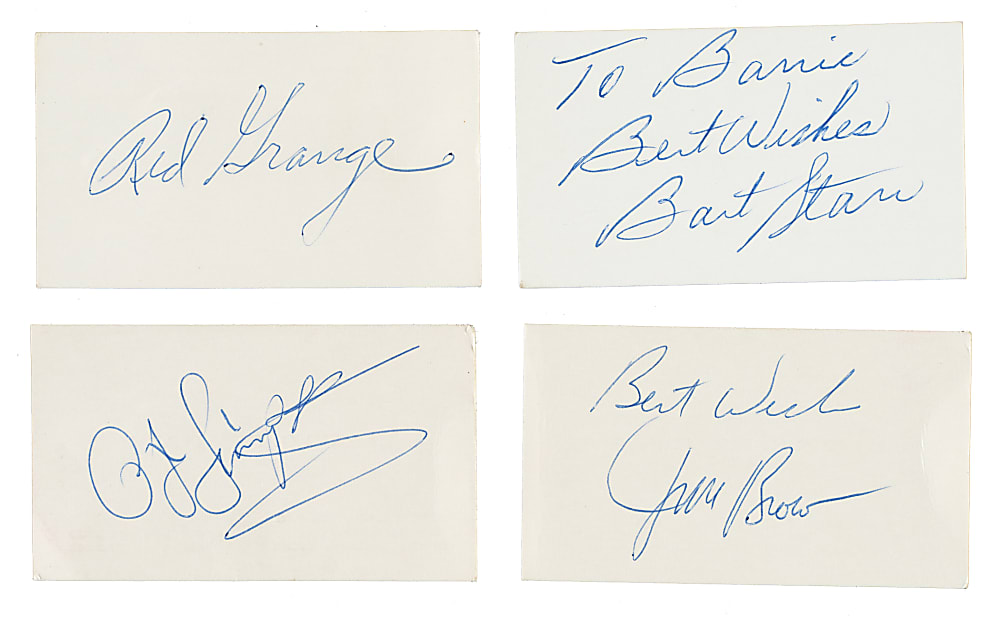 Red Grange
To Barrie
Best Wishes
Bart Starr
O.J. Simpson
Best Wish
Jim Brown